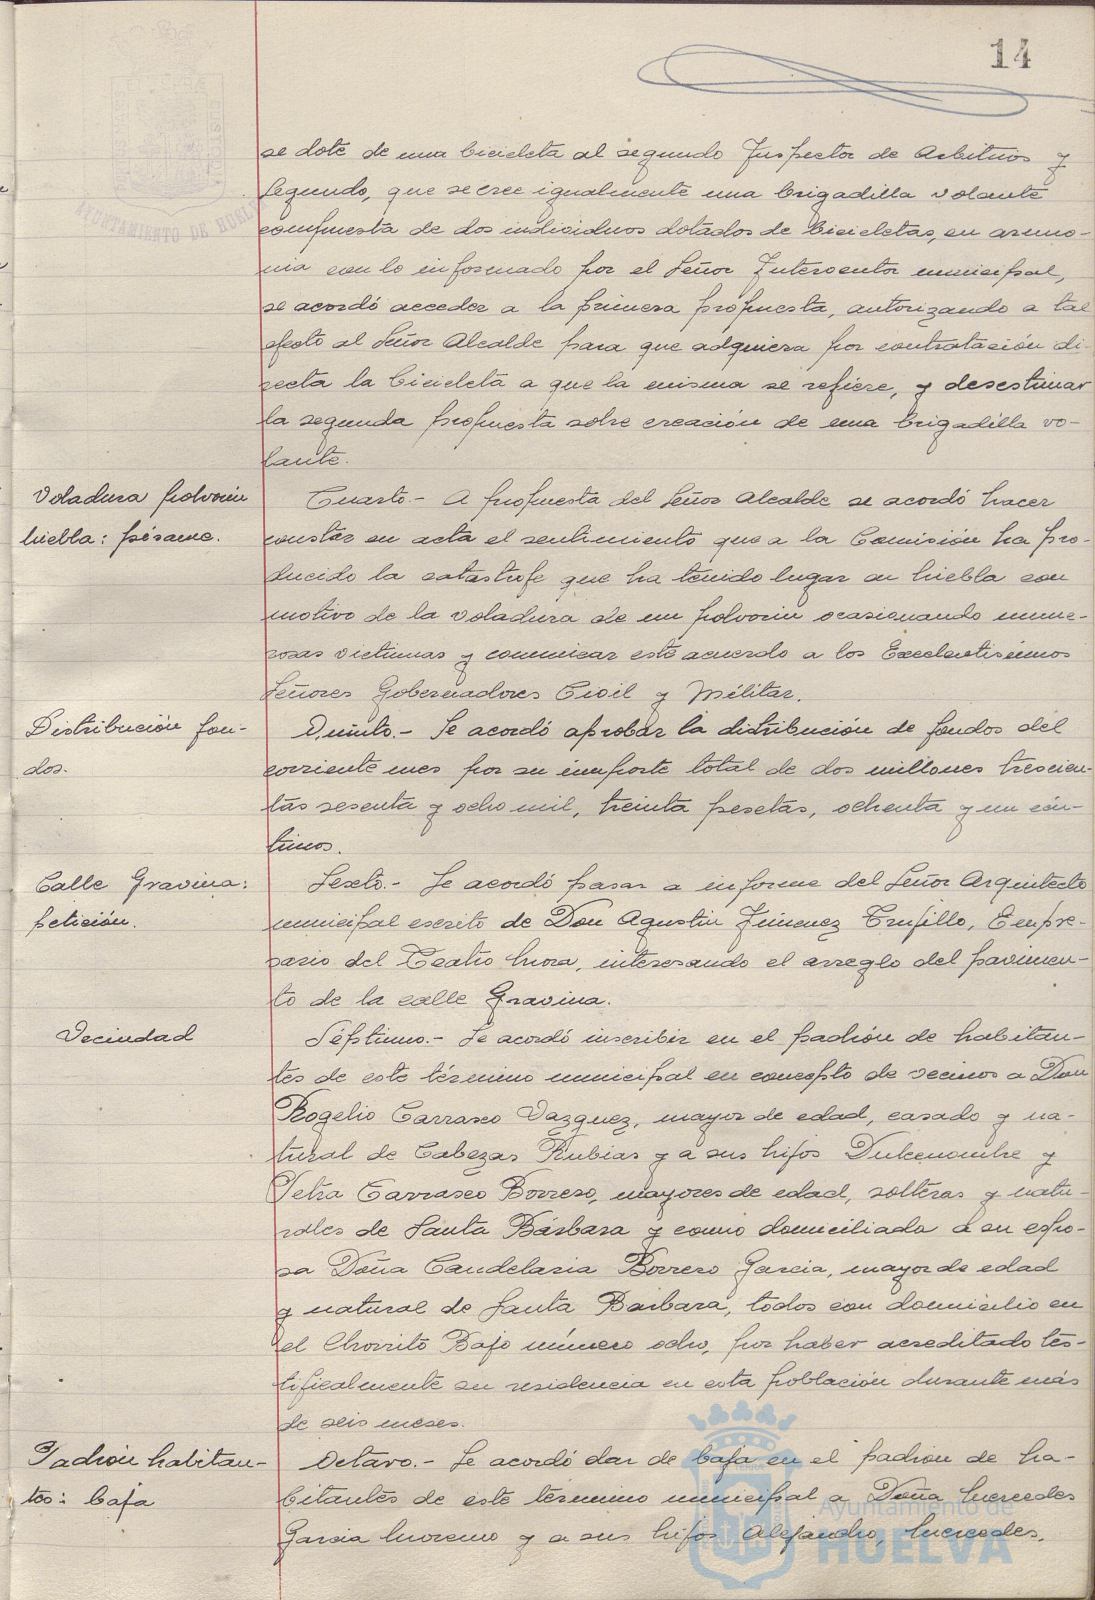 14
AYUNTAMIENTO DE HUELVA
se dote de una bicicleta al segundo Inspector de Arbitrios y
Segundo, que se cree igualmente una brigadilla volante
compuesta de dos individuos dotados de bicicletas, en armo-
nia con lo informado por el Señor Interventor municipal,
se acordó acceder a la primera propuesta, autorizando a tal
efecto al Señor Alcalde para que adquiera por contratación di-
recta la bicicleta a que la misma se refiere, y desestimar
la segunda propuesta sobre creación de una brigadilla vo-
lante.
Voladura polvorin
Niebla: pésame.
Cuarto.- A propuesta del Señor Alcalde se acordó hacer
constar en acta el sentimiento que a la Comisión ha pro-
ducido la catastrofe que ha tenido lugar en Niebla con
motivo de la voladura de un polvorin ocasionando nume-
rosas victimas y comunicar este acuerdo a los Excelentisimos
Señores Gobernadores Civil y Militar.
Distribución fon-
dos.
Quinto.- Se acordó aprobar la distribución de fondos del
corriente mes por su importe total de dos millones trescien-
tas sesenta y ocho mil, treinta pesetas, ochenta y un cén-
timos.
Calle Gravina:
petición.
Sexto.- Se acordó pasar a informe del Señor Arquitecto
municipal escrito de Don Agustin Jimenez Trujillo, Empre-
sario del Teatro Mora, interesando el arreglo del pavimen-
to de la calle Gravina.
Vecindad
Séptimo.- Se acordó inscribir en el padrón de habitan-
tes de este término municipal en concepto de vecinos a Don
Rogelio Carrasco Vazquez, mayor de edad, casado y na-
tural de Cabezas Rubias y a sus hijos Dulcenombre y
Petra Carrasco Borrero, mayores de edad, solteras y natu-
rales de Santa Bárbara y como domiciliada a su espo-
sa Doña Candelaria Borrero Garcia, mayor de edad
y natural de Santa Barbara, todos con domicilio en
el Chorrito Bajo número ocho, por haber acreditado tes-
tificalmente su residencia en esta población durante más
de seis meses.
Padrón habitan-
tes: baja
Octavo.- Se acordó dar de baja en el padrón de ha-
bitantes de este término municipal a Doña Mercedes
Garcia Moreno y a sus hijos Alejandro, Mercedes,
Ayuntamiento de
HUELVA